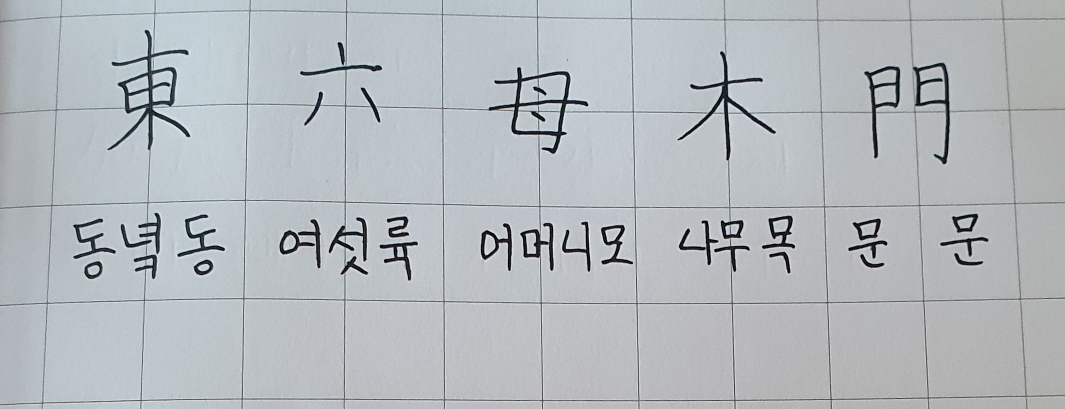 東 六 母 木 門
동녘 동 여섯 륙 어머니 모 나무 목 문 문